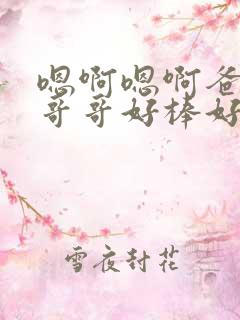 嗯啊嗯啊爸
哥哥好棒好
雪夜封花